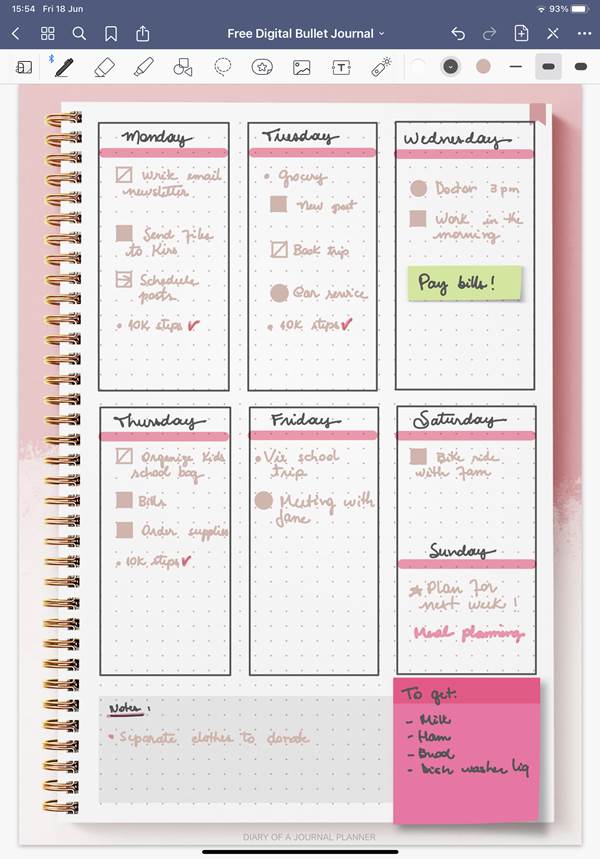 15:54 Fri 18 Jun
93%
Free Digital Bullet Journal
Monday
Write email
newsletter
Send files
to Kirs
Schedule
posts
• 10K steps ✓
Tuesday
• Grocery
New post
Book trip
Car service
• 10K steps ✓
Wednesday
Doctor 3pm
Work in the
morning
Pay bills!
Thursday
Organize Kids
school bag
Bills
Order supplies
• 10K steps ✓
Friday
• Vic school
trip
Meeting with
Jane
Saturday
Bike ride
with Fam
Sunday
Plan for
next week!
Meal planning
Notes:
• Separate clothes to donate
To get:
- Milk
- Ham
- Bread
- Dish washer liq
DIARY OF A JOURNAL PLANNER